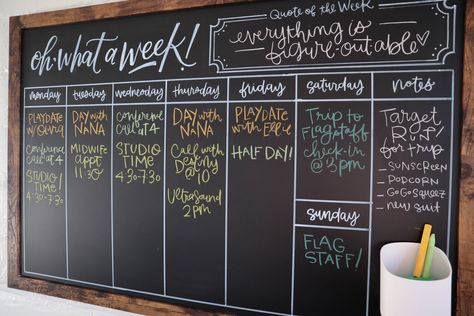 oh, what a week!
Quote of the Week
everything is
figure-out-able
monday
tuesday
wednesday
thursday
friday
saturday
notes
PLAYDATE
Conference
call at 4
STUDIO
TIME
4:30-7:30
DAY with
NANA
MIDWIFE
appt
11:30
Conference
CALL AT 4
STUDIO
TIME
4:30-7:30
DAY with
NANA
Call with
Destiny
@1
Ultrasound
2pm
PLAYDATE
with Ellie
HALF DAY!
Trip to
Flagstaff
check-in
@3pm
sunday
FLAG
STAFF!
Target
RUN
for trip
- SUNSCREEN
- POPCORN
- GoGo Squeez
- new suit